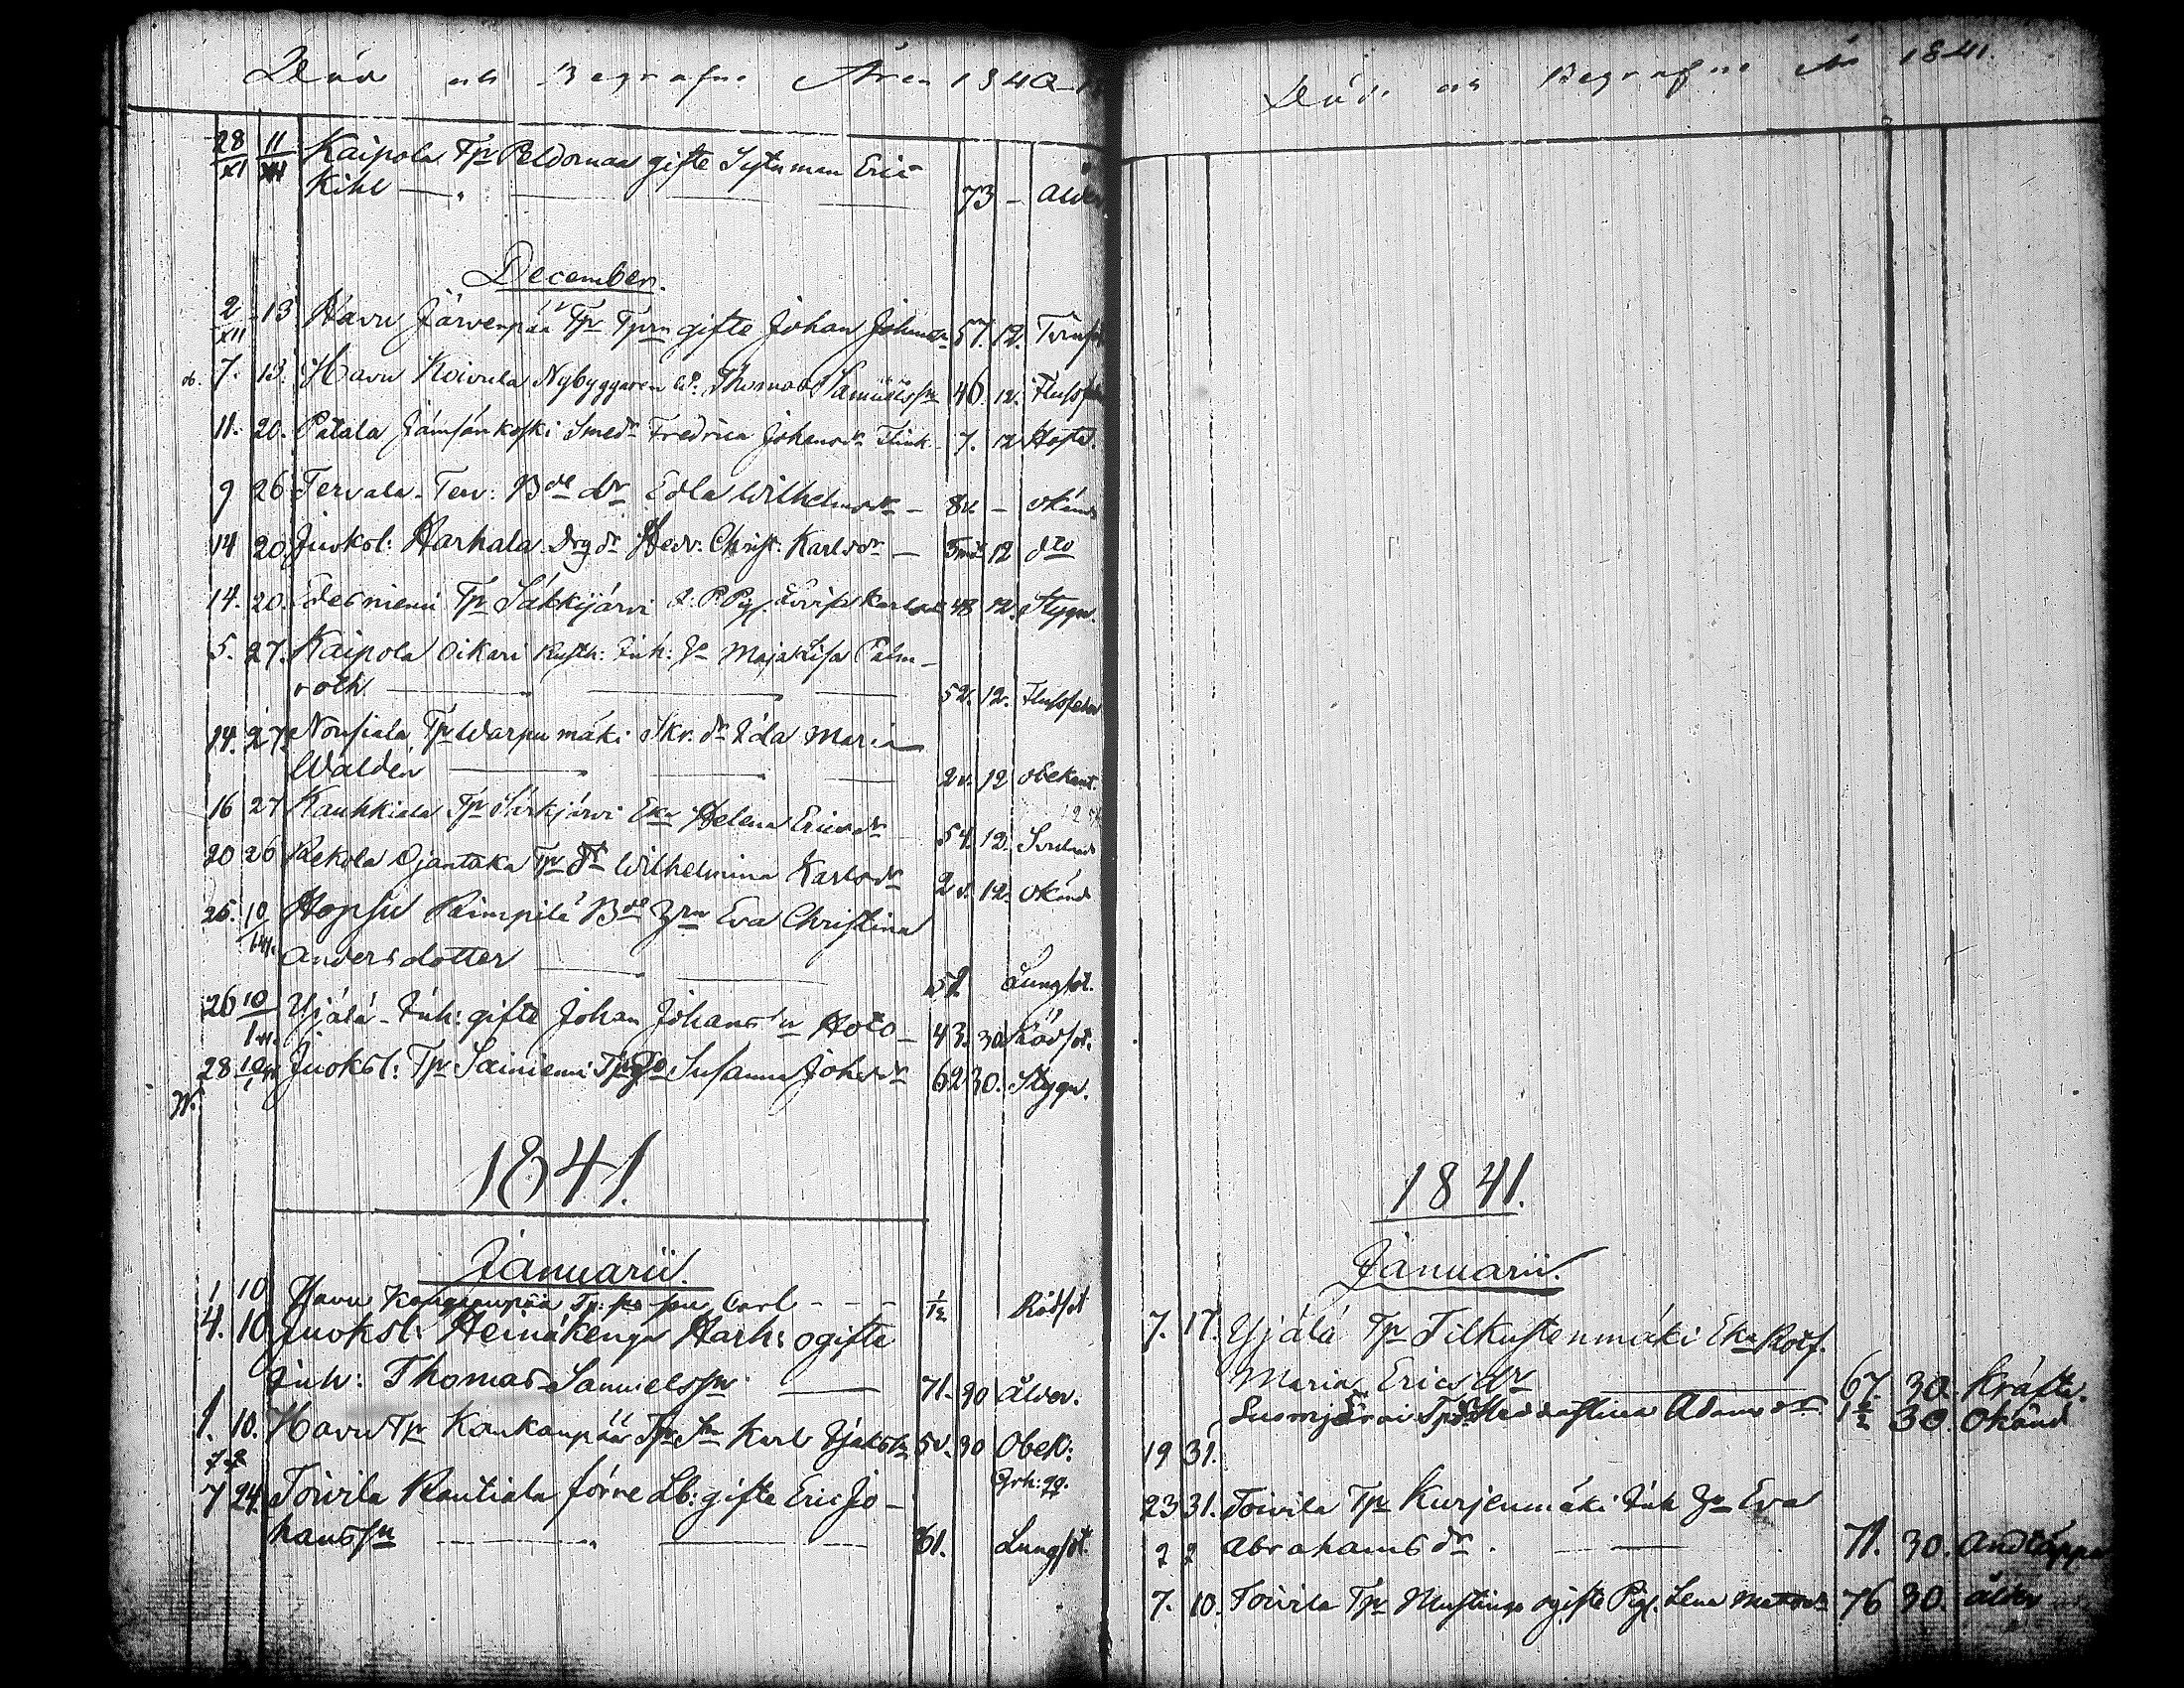 Döde och Begrafne Åren 1840-
28/XI 11/XII Kaipola Tp Peldomaa gifte Sytnman Eric
Kihl — 73 - Ålder
December.
2/XII 13 Havu Järvenpää Tp Tprn gifte Johan Johanss 57. 12.
7. 13. Havu Koivula Nybyggaren Thomas Samuelssn 40. 12.
11. 20. Patala Jämsänkoski Smeds Fredrica Johansdr Flink 7. 12
9 26 Tervala - Terv: Bde dr Edla Wilhelmsdr - 8 - okänd
14 20 Juoksl: Harhala Drg dr Hedv: Christ: Karlsdr — 12 dto
14. 20. Edesniemi Tp Säkkijärvi Pig Lovisa Karlsdr 48 12. Stygn.
5. 27. Kaipola Oikari Rusth: Inh: Maja Lisa Palm-
roth — 52. 12. Flussfeber
14. 27. Nousiala Tp Warpumäki Skr. dr Ida Maria
Waldén — 2 12 obekant.
16 27 Kauhkiala Tp Särkjärvi Eka Helena Ericsdr 54. 12.
20 26 Rekola Ojantaka Tp dr Wilhelmina Karlsdr 2 12. okänd
25. 10/1 41. Hopsu Rimpilä Bde Eva Christina
Andersdotter — 52 Lungsot.
26 10/1 41. Yijälä - Inh: gifte Johan Johanss'n Hoto - 43. 30 Rödsot.
28 10/1 41 Juoksl: Tp Sainiemi Susanna Johsdr 62 30. Stygn.
1841.
Januarii.
1 10 Havu Tp: son Carl - - - 1/12 Rödsot
4. 10 Juoksl: Heinäkenga Harh: ogifte
Inh: Thomas Samuelssn — 71. 30 Ålder.
1. 10. Havu Tp Koukanpää Karl 5 30 Obek:
7 24. Toivila Rautiala förre Lb: gifte Eric Jo-
hanssn — 61. Lungsot.
Döde och Begrafne År 1841.
1841.
Januarii.
7. 17. Yijälä Tp Tilkustenmäki Eka Rotf.
Maria Ericsdr — 67. 30. Kräfta.
Adamsdr 1 1/2 30. Okänd
19 31.
23 31. Toivila Tp Kurjenmäki Inh Eva
2 2 Abrahamsdr. — 71. 30. Andtäppa
7. 10. Toivila Tp Mustinga ogifte Pig. Lena Mattsdr 76 30. ålder